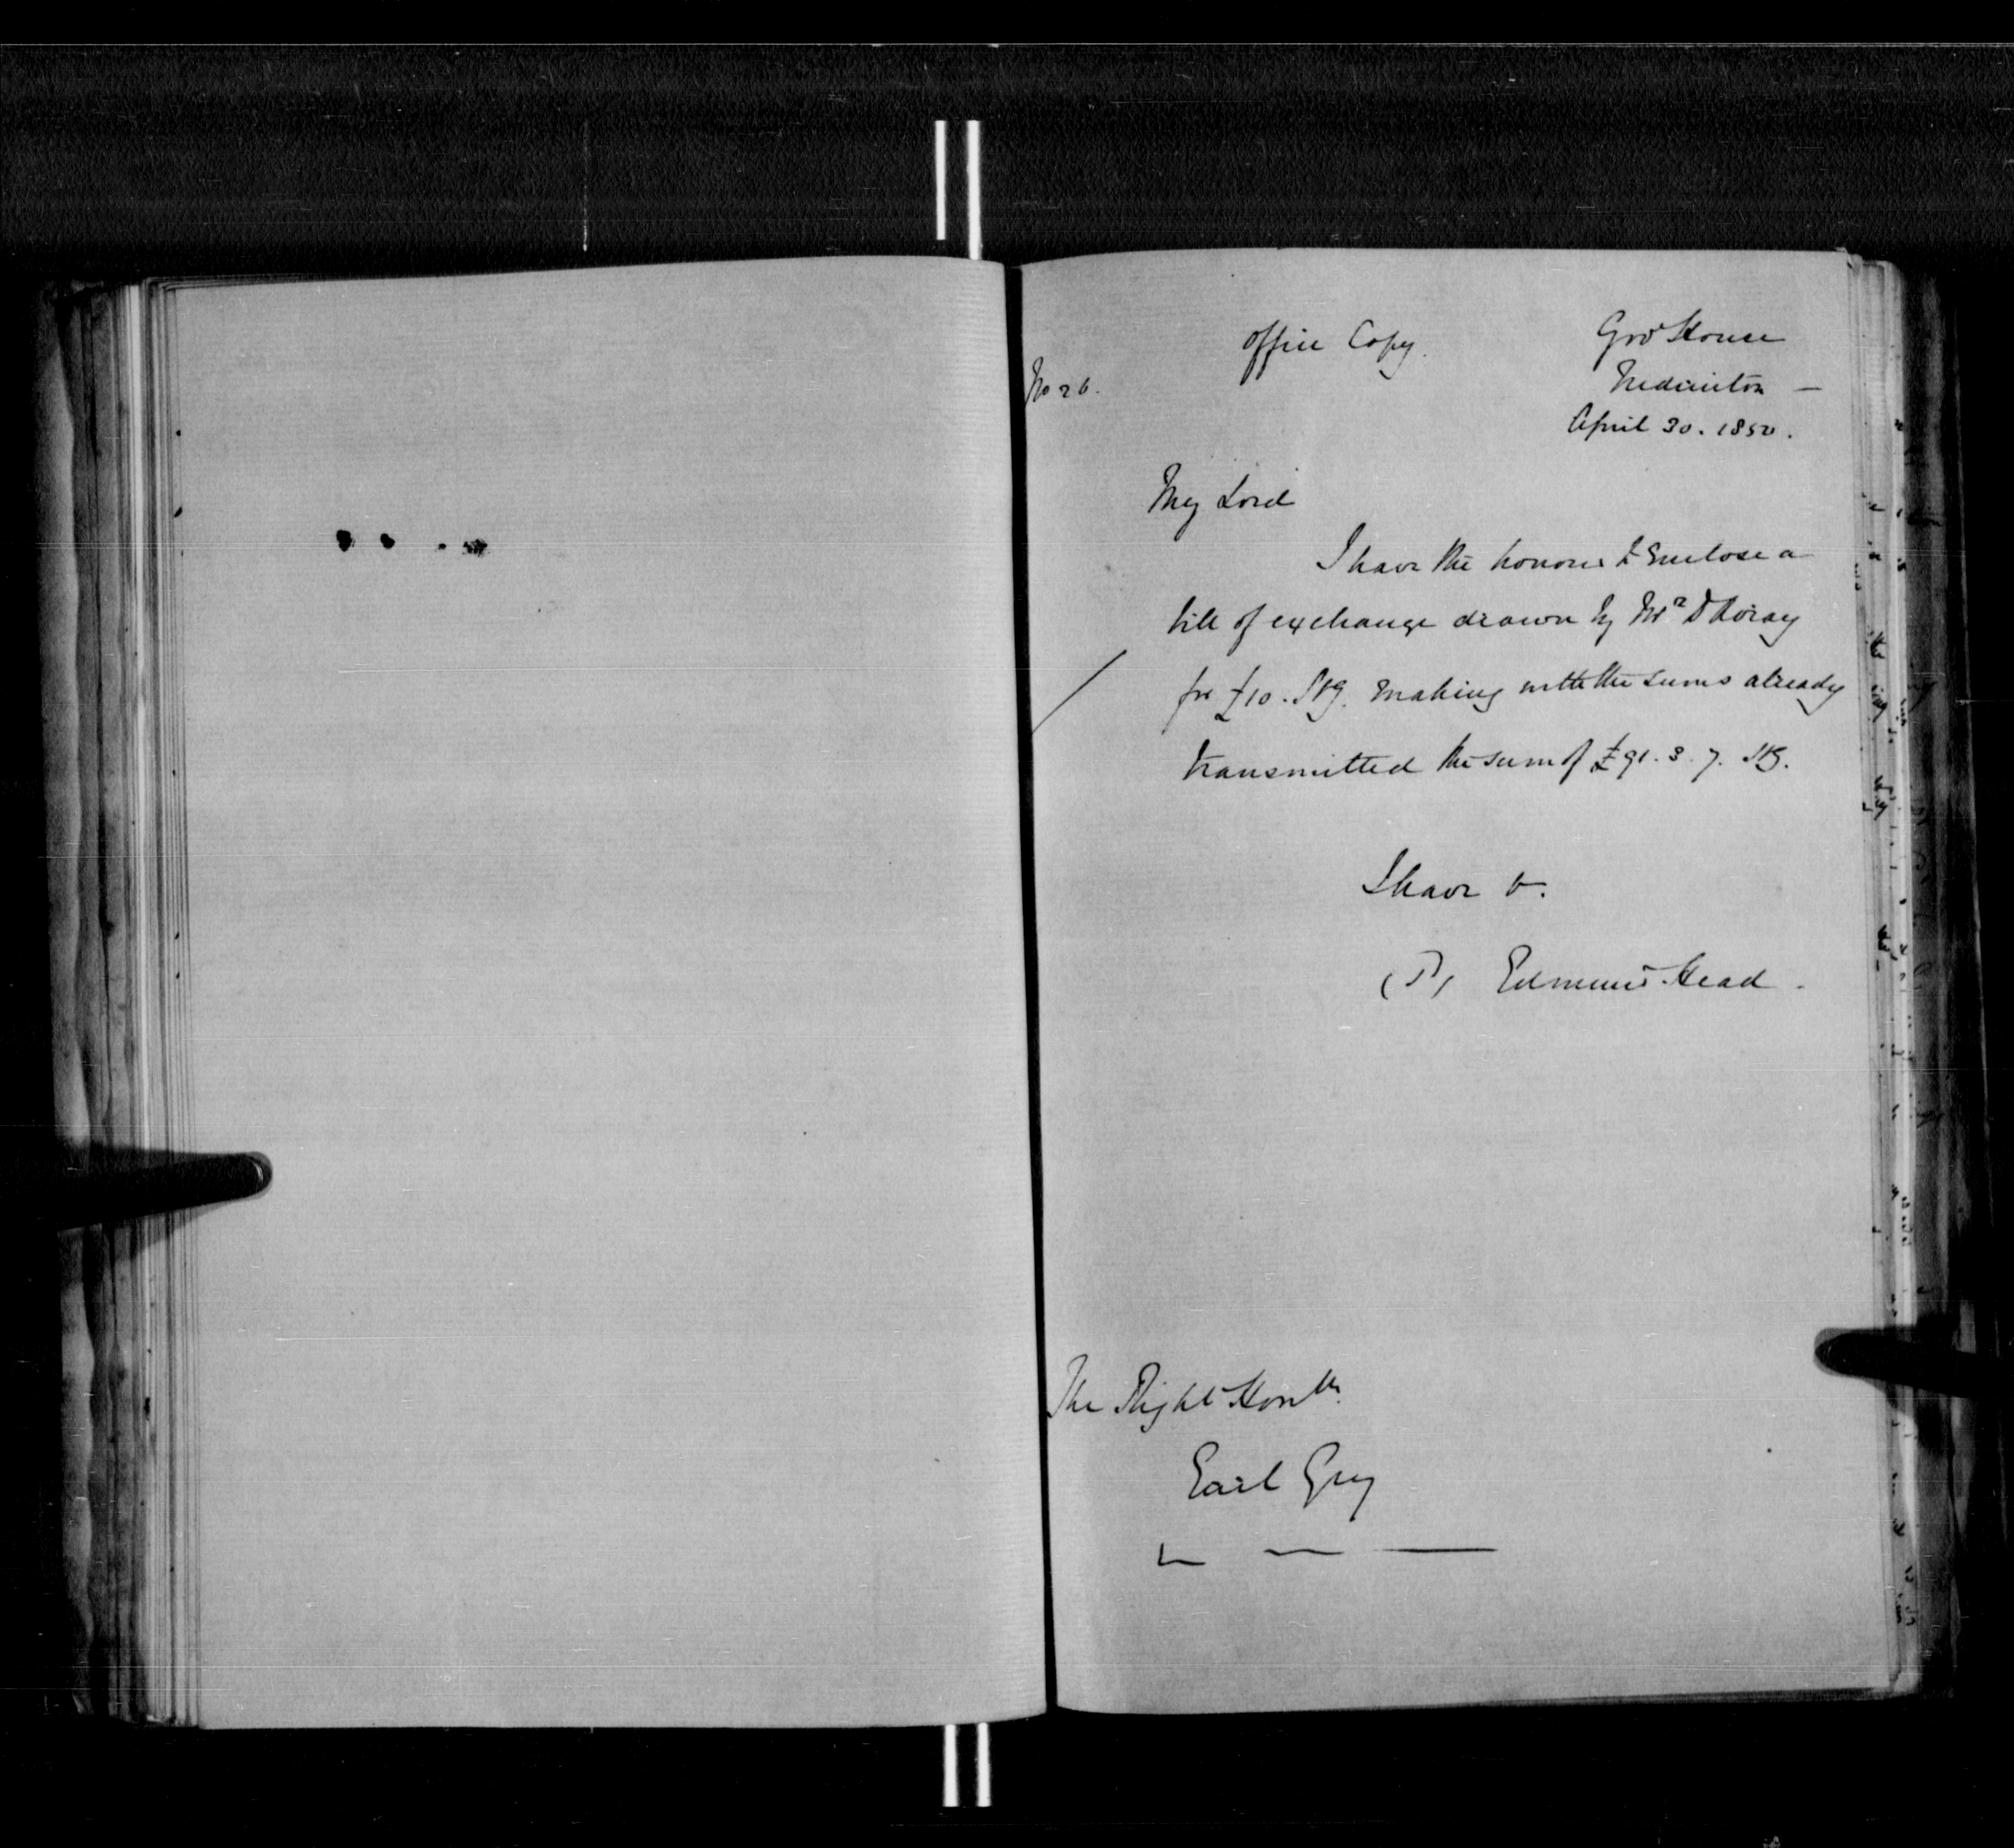 office Copy.
Govt House
No 26.
Fredericton —
April 30. 1850.
My Lord
I have the honour to enclose a
bill of exchange drawn by Mr
for £10. Stg. making with the sums already
transmitted the sum of £91. 3. 7. Stg.
I have &.
(S) Edmund Head.
The Right Honble
Earl Grey